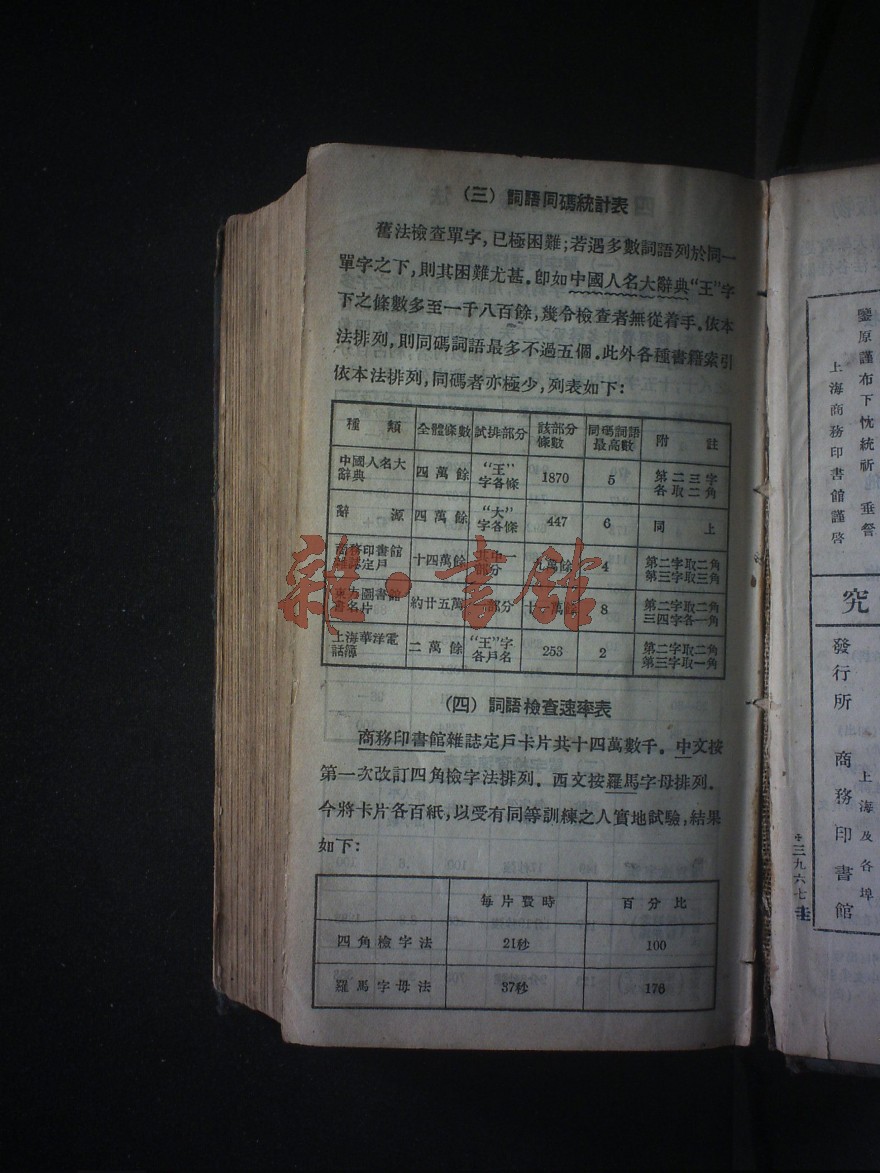 (三) 詞語同碼統計表
舊法檢查單字,已極困難;若遇多數詞語列於同一
單字之下,則其困難尤甚.卽如中國人名大辭典“王”字
下之條數多至一千八百餘,幾令檢查者無從着手.依本
法排列,則同碼詞語最多不過五個.此外各種書籍索引
依本法排列,同碼者亦極少,列表如下:
種類 全體條數 試排部分 該部分條數 同碼詞語最高數 附註
中國人名大辭典 四萬餘 “王”字各條 1870 5 第二三字各取二角
辭源 四萬餘 “大”字各條 447 6 同上
商務印書館雜誌定戶 十四萬餘 其中一部分 九萬餘 4 第二字取二角第三字取三角
東方圖書館書名片 約廿五萬 一部分 十一萬餘 8 第二字取二角三四字各一角
上海華洋電話簿 二萬餘 “王”字各戶名 253 2 第二字取二角第三字取一角
(四) 詞語檢查速率表
商務印書館雜誌定戶卡片共十四萬數千.中文按
第一次改訂四角檢字法排列.西文按羅馬字母排列.
今將卡片各百紙,以受有同等訓練之人實地試驗,結果
如下:
每片費時 百分比
四角檢字法 21秒 100
羅馬字母法 37秒 176
雜·書館
鑒原謹布下忱統祈 垂詧
上海商務印書館謹啓
究
發行所 商務印書館
上海及各埠
三九六七